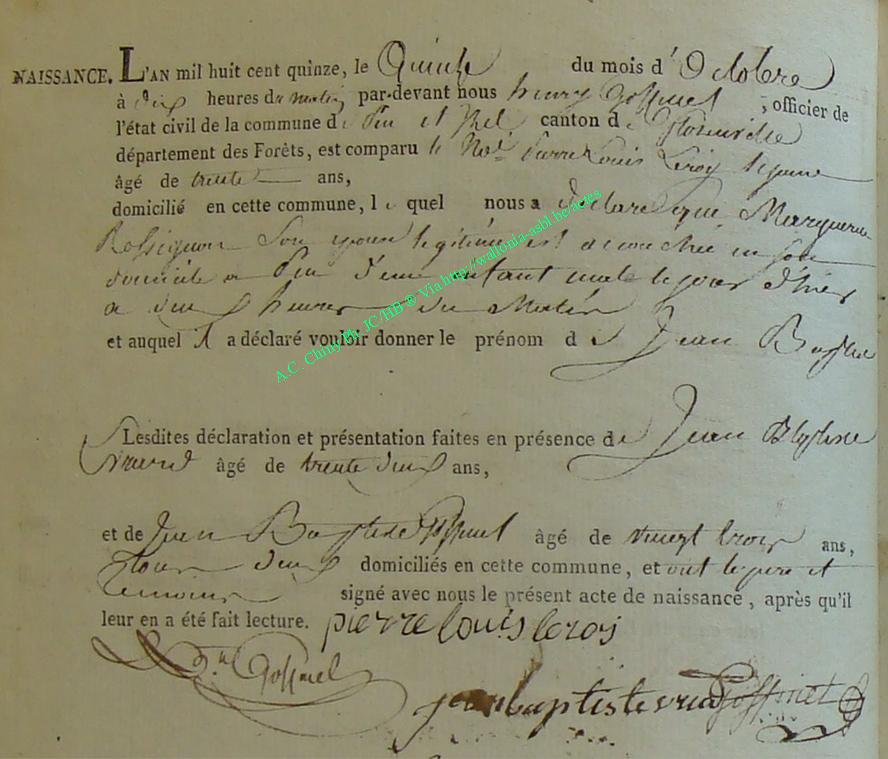 NAISSANCE. L'AN mil huit cent quinze, le Quinze du mois d' Octobre
à dix heures du matin par-devant nous henry Goffinet, officier de
l'état civil de la commune de Pin et Izel canton de florenville
département des Forêts, est comparu le Pierre Louis Leroy
âgé de trente ans,
domicilié en cette commune, le quel nous a déclaré que Marguerite
Rossignon son epouse legitime est accouchée en son
domicile a Pin d'une enfant male le jour d'hier
a dix heures du Matin
et auquel il a déclaré vouloir donner le prénom de Jean Baptiste
Lesdites déclaration et présentation faites en présence de Jean Bptiste
âgé de trente deux ans,
et de Jean Baptiste Goffinet âgé de vingt trois ans,
tous deux domiciliés en cette commune, et ont le pere et
temoins signé avec nous le présent acte de naissance, après qu'il
leur en a été fait lecture. pierre louis leroy
hy Goffinet
jean baptiste Goffinet
A.C. Chiny Ph. JC/HB ® Via http://wallonia-asbl.be/actes